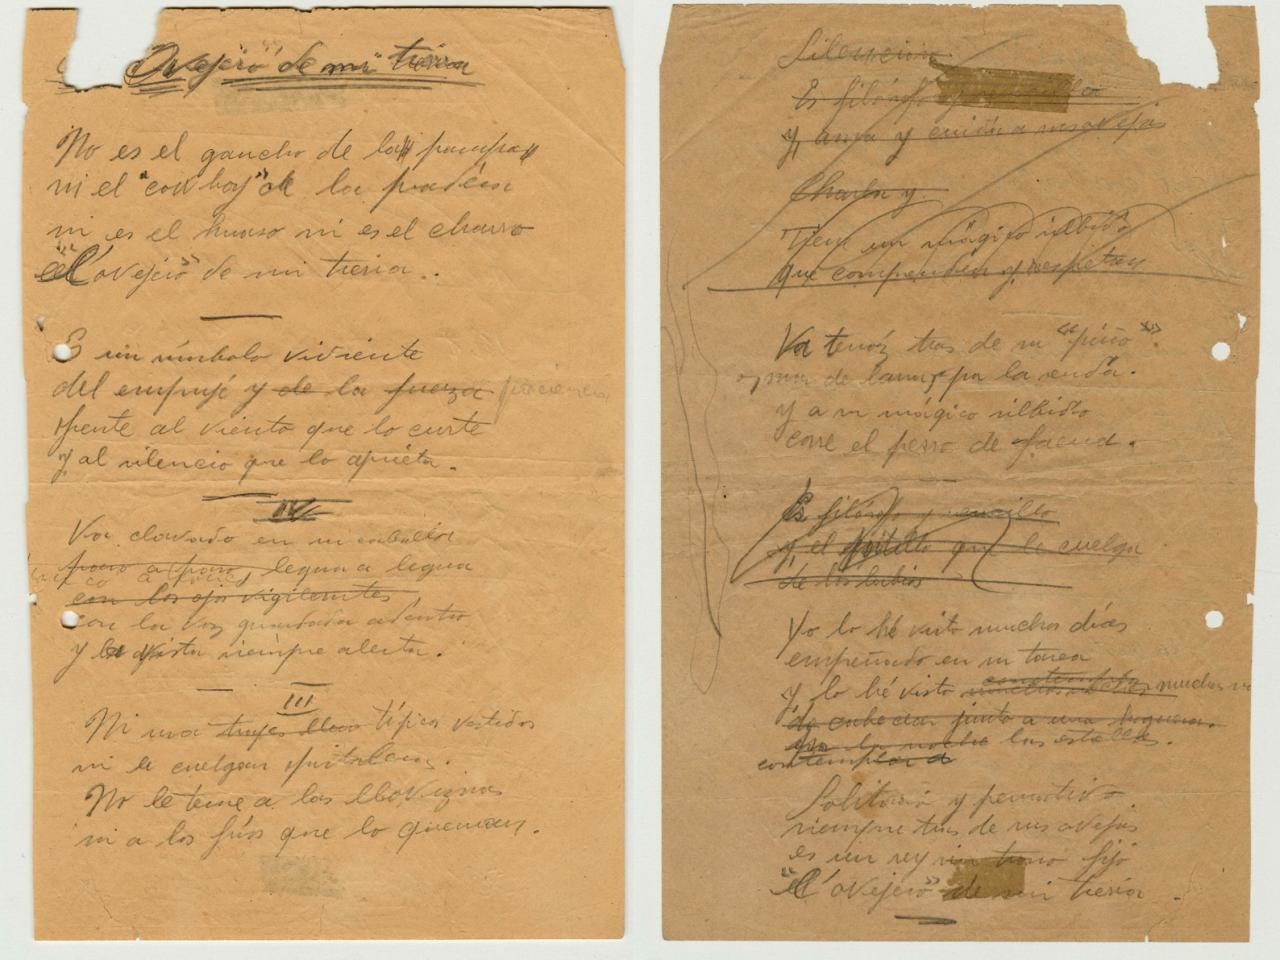 "Ovejero" de mi tierra
No es el gaucho de la pampa
ni el "cowboy" de la pradera
ni es el huaso ni es el charro
"el ovejero" de mi tierra.
Es un símbolo viviente
del empuje y de la fuerza paciencia
frente al viento que lo curte
y al silencio que lo aprieta.
IV
Va clavado en su caballo
paso a paso, legua a legua
poco a poco
con los ojos vigilantes
con la voz guardada adentro
y la vista siempre alerta.
III
Ni usa trajes típicos vestidos
ni le cuelgan
No le teme a las lloviznas
ni a los fríos que lo queman.
Silencioso
Es filósofo y
y, ama y cuida a sus ovejas
Charla y
Tiene un mágico silbido
que comprenden y respetan
Va tenaz tras de su "piño".
mar de lana, por la senda.
y a su mágico silbido
corre el perro de faena.
Es filósofo y sencillo
y, el que le cuelga
de los labios
Yo lo hé visto muchos días
empeñado en su tarea
y lo hé visto muchas
contemplar
de cabecear junto a una hoguera.
en la noche las estrellas.
contemplando
Solitario y pensativo
siempre tras de sus ovejas
es un rey sin trono fijo
"el ovejero" de mi tierra.